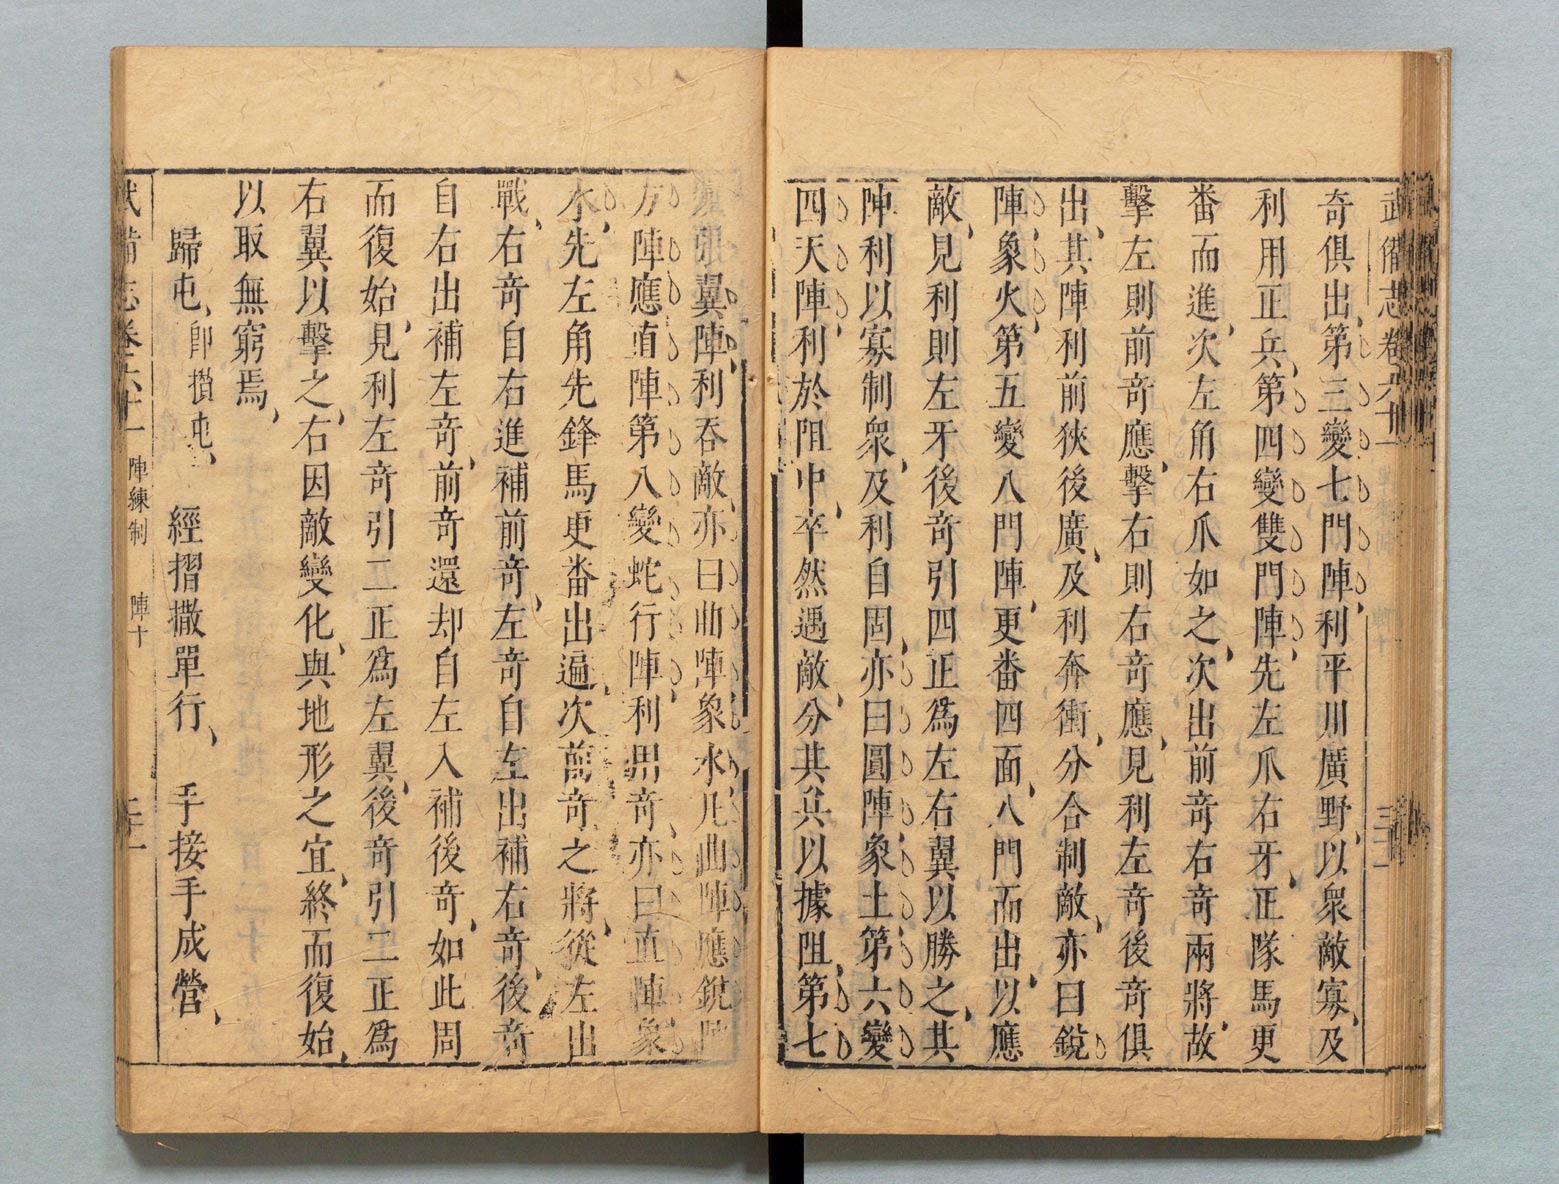 武備志卷六十一
三十一
奇俱出第三變七門陣利平川廣野以衆敵寡及
利用正兵第四變雙門陣先左爪右牙正隊馬更
畨而進次左角右爪如之次出前奇右奇兩將故
擊左則前奇應擊右則右奇應見利左奇後奇俱
出其陣利前狹後廣及利奔衝分合制敵亦曰銳
陣象火第五變八門陣更畨四面八門而出以應
敵見利則左牙後奇引四正爲左右翼以勝之其
陣利以寡制衆及利自固亦曰圓陣象土第六變
四天陣利於阻中卒然遇敵分其兵以據阻第七
變張翼陣利吞敵亦曰曲陣象水凡曲陣應銳陣
方陣應直陣第八變蛇行陣利出奇亦曰直陣象
水先左角先鋒馬更畨出遍次萬奇之將從左出
戰右奇自右進補前奇左奇自左出補右奇後奇
自右出補左奇前奇還却自左入補後奇如此周
而復始見利左奇引二正爲左翼後奇引二正爲
右翼以擊之右因敵變化與地形之宜終而復始
以取無窮焉
歸屯卽攅屯 經摺撒單行 手接手成營
武備志卷六十一 陣練制 陣十